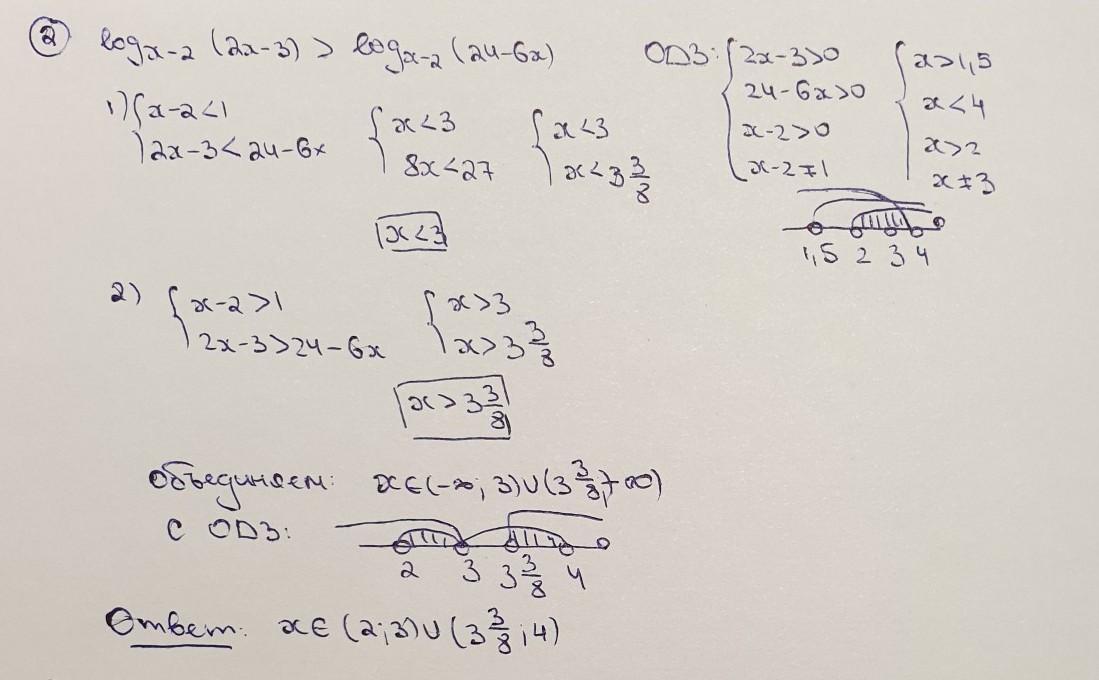 ② log_{x-2} (2x-3) > log_{x-2} (24-6x)
ОДЗ: { 2x-3>0 { x>1,5
24-6x>0 x<4
x-2>0 x>2
x-2≠1 x≠3
1,5 2 3 4
1) { x-2<1 { x<3 { x<3
2x-3<24-6x 8x<27 x<3 3/8
x<3
2) { x-2>1 { x>3
2x-3>24-6x x>3 3/8
x>3 3/8
Объединяем: x∈(-∞; 3)∪(3 3/8; +∞)
С ОДЗ:
2 3 3 3/8 4
Ответ: x∈ (2;3)∪(3 3/8; 4)